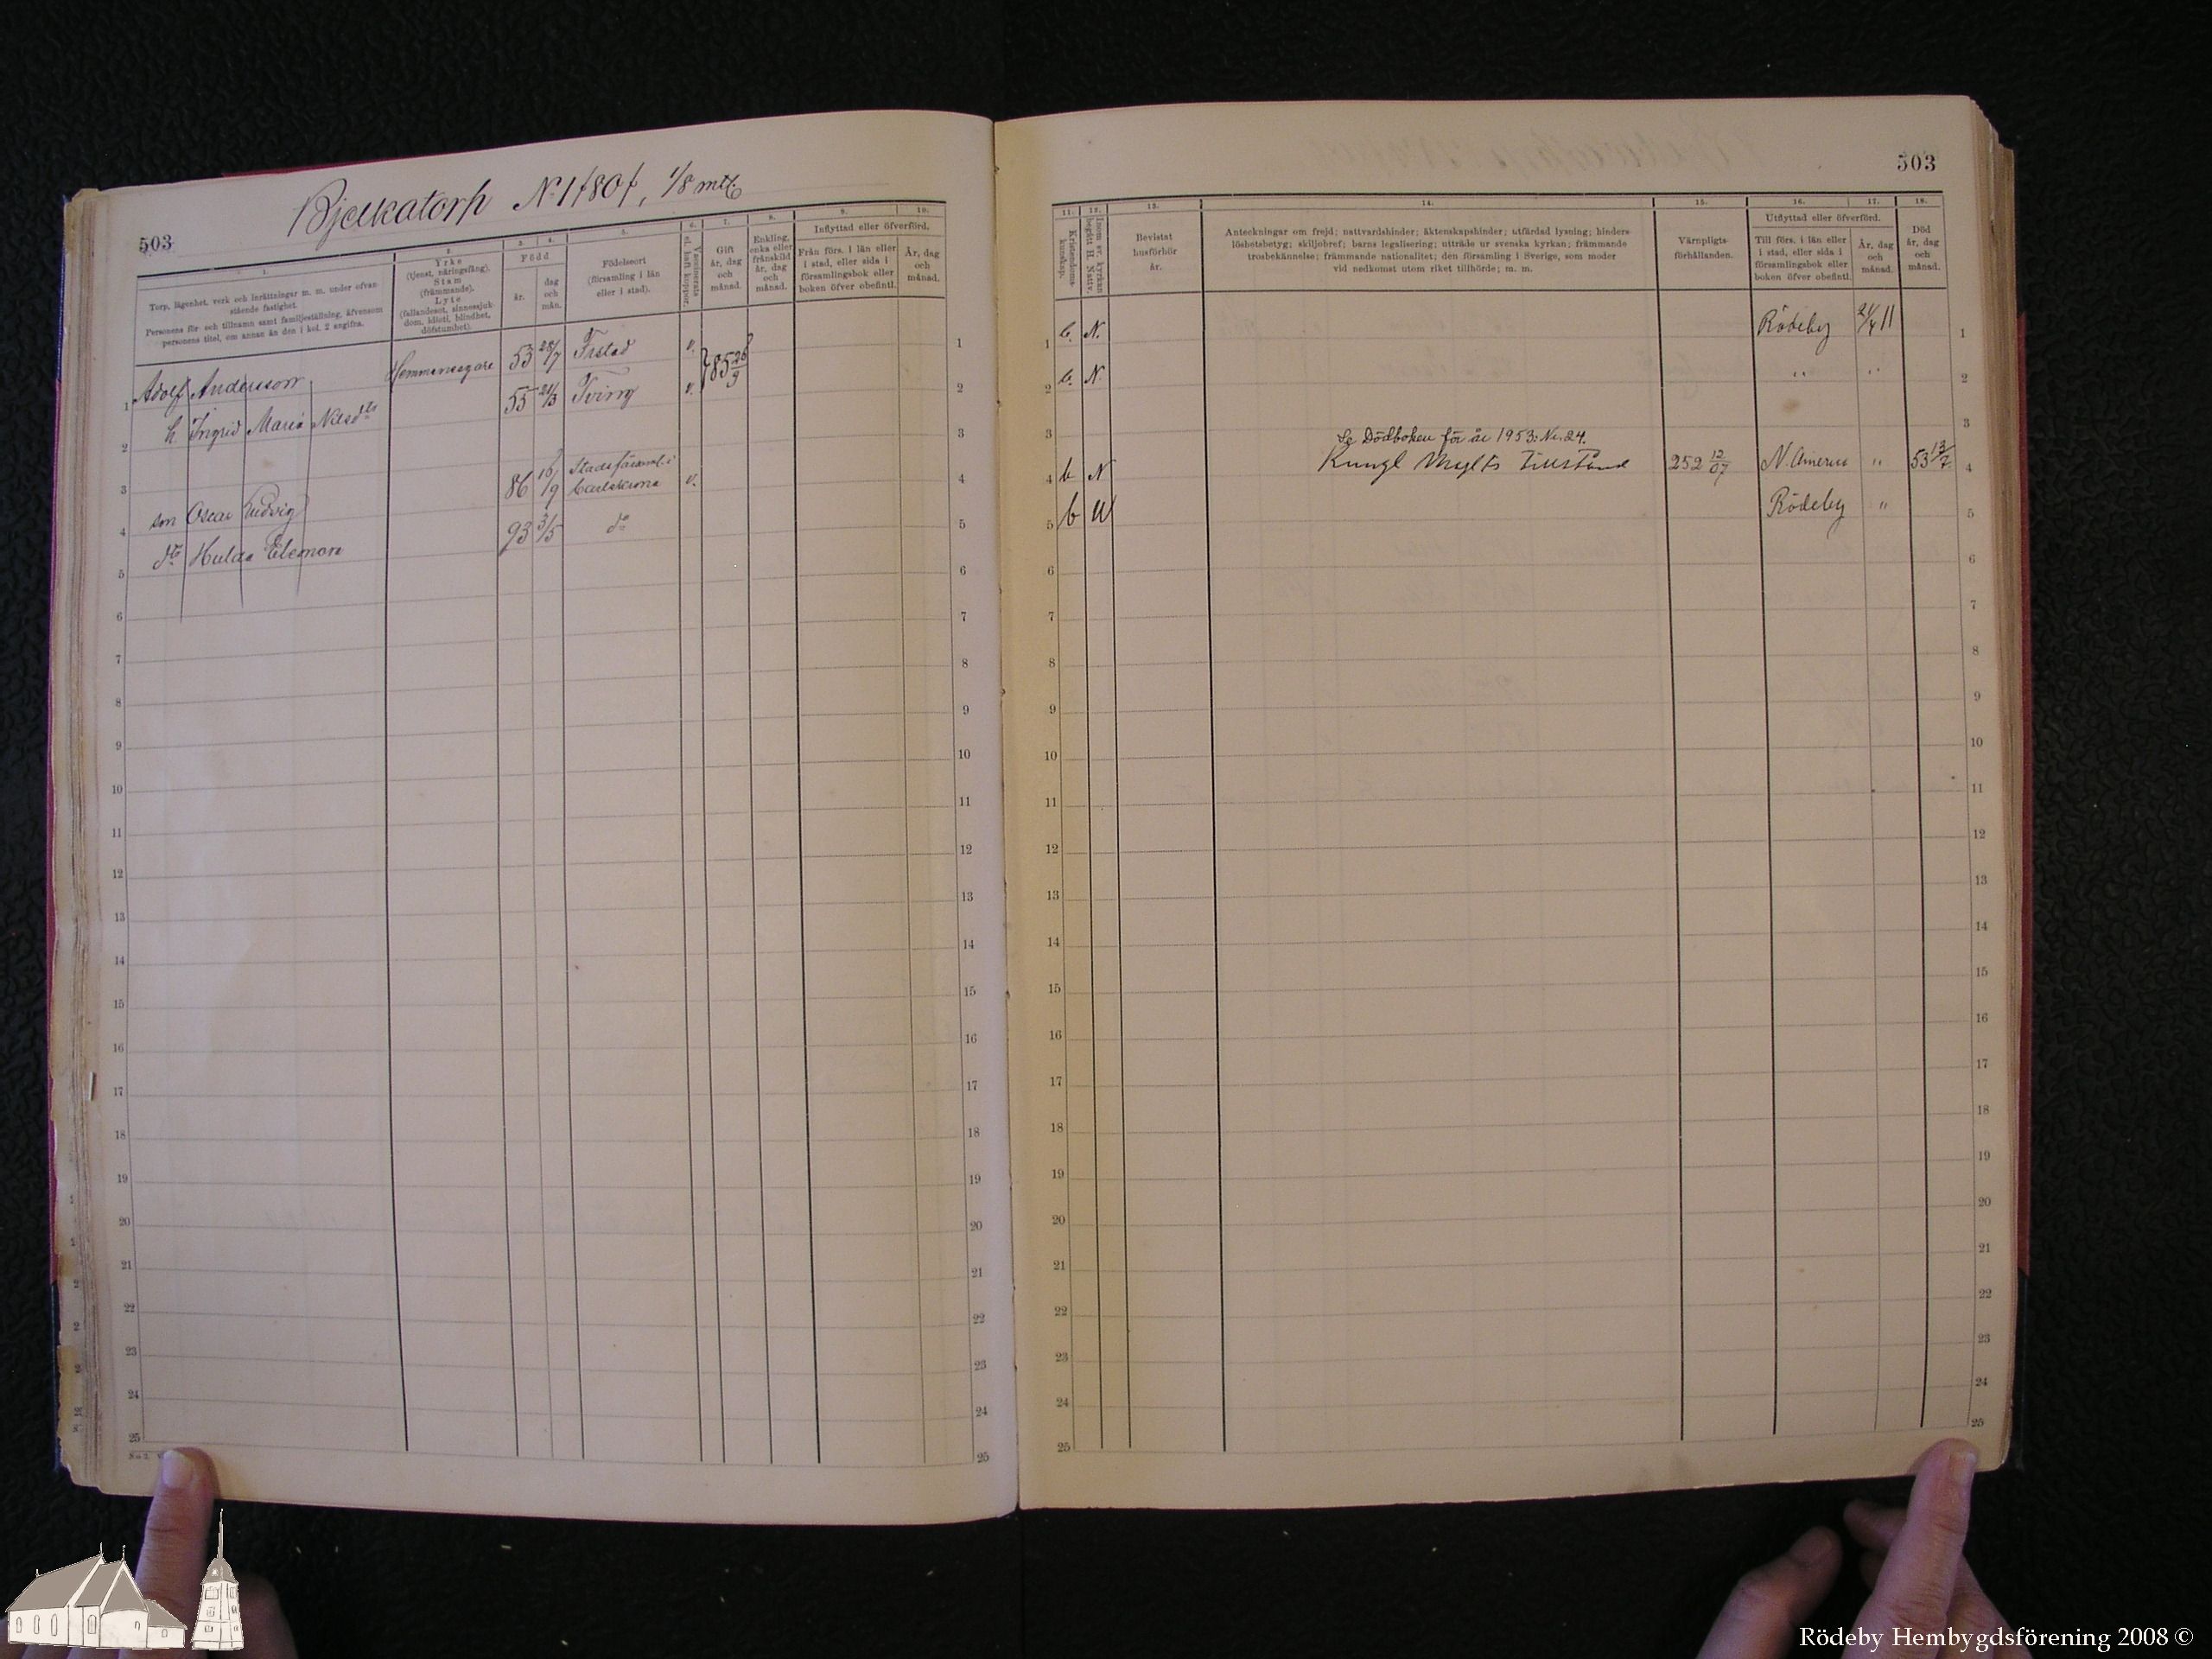 Bjelkatorp No 1 f 80 f, 1/8 mtl
503
1.
Torp, lägenhet, verk och inrättningar m. m. under ofvanstående fastighet.
Personens för- och tillnamn samt familjeställning, äfvensom personens titel, om annan än den i kol. 2 angifna.
2.
Yrke
(tjenst, näringsfång).
Stam
(främmande).
Lyte
(fallandesot, sinnessjukdom, idioti, blindhet, döfstumhet).
3. 4.
Född
år.
dag och mån.
5.
Födelseort
(församling i län eller i stad).
6.
Vaccinerats el. haft koppor.
7.
Gift
år, dag och månad.
8.
Enkling, enka eller frånskild
år, dag och månad.
9. 10.
Inflyttad eller öfverförd.
Från förs. i län eller i stad, eller sida i församlingsbok eller boken öfver obefintl.
År, dag och månad.
1 Adolf Andersson Hemmansegare 53 28/7 v. 85 26/9 1
2 h. Ingrid Maria Nilsdtr 55 21/3 Tving v. 2
3 3
4 son Oscar Ludvig 86 16/9 Stadsförsaml. i Carlskrona v. 4
5 dtr Hulda Eleonora 93 3/5 do 5
6 6
7 7
8 8
9 9
10 10
11 11
12 12
13 13
14 14
15 15
16 16
17 17
18 18
19 19
20 20
21 21
22 22
23 23
24 24
25 25
503
11.
Kristendomskunskap.
12.
Inom sv. kyrkan begått H. Nattv.
13.
Bevistat husförhör år.
14.
Anteckningar om frejd; nattvardshinder; äktenskapshinder; utfärdad lysning; hinderslöshetsbetyg; skiljobref; barns legalisering; utträde ur svenska kyrkan; främmande trosbekännelse; främmande nationalitet; den församling i Sverige, som moder vid nedkomst utom riket tillhörde; m. m.
15.
Värnpligtsförhållanden.
16. 17.
Utflyttad eller öfverförd.
Till förs. i län eller i stad, eller sida i församlingsbok eller boken öfver obefintl.
År, dag och månad.
18.
Död
år, dag och månad.
1 b. N. Rödeby 11 1
2 b. N. " " 2
3 Se Dödboken för år 1953: Nr. 24. 3
4 b N Kungl Majts Tillstånd 252 12/07 N. Amerika " 53 13/7 4
5 b U Rödeby " 5
6 6
7 7
8 8
9 9
10 10
11 11
12 12
13 13
14 14
15 15
16 16
17 17
18 18
19 19
20 20
21 21
22 22
23 23
24 24
25 25
Rödeby Hembygdsförening 2008 ©